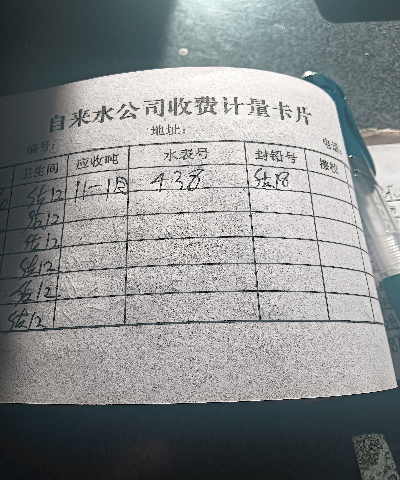 自来水公司收费计量卡片
编号: 地址: 电话
卫生间 应收吨 水表号 封铅号
结12 11-1日 438 结18
结12
结12
结12
结12
结12